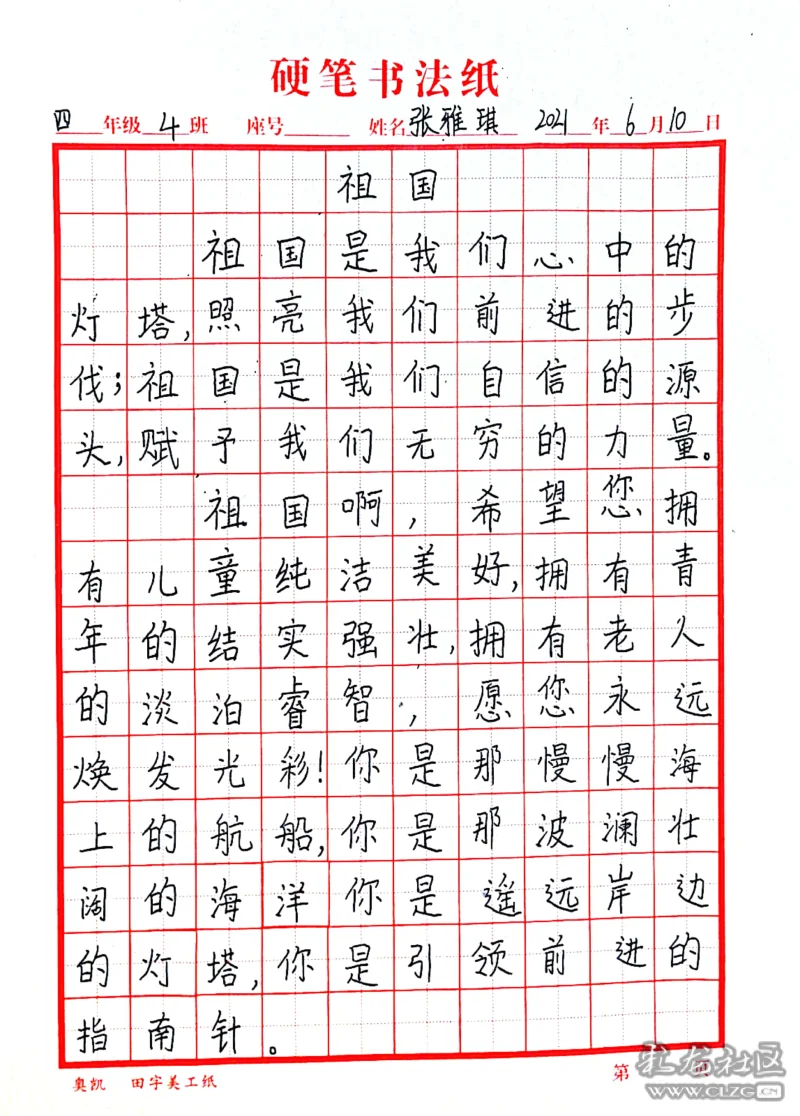 硬笔书法纸
四年级4班 座号 姓名张雅琪 2021年6月10日
祖国
祖国是我们心中的
灯塔,照亮我们前进的步
伐;祖国是我们自信的源
头,赋予我们无穷的力量。
祖国啊,希望您拥
有儿童纯洁美好,拥有青
年的结实强壮,拥有老人
的淡泊睿智,愿您永远
焕发光彩!你是那慢慢海
上的航船,你是那波澜壮
阔的海洋你是遥远岸边
的灯塔,你是引领前进的
指南针。
奥凯 田字美工纸 第 页
社区
WWW.CLZG.CN